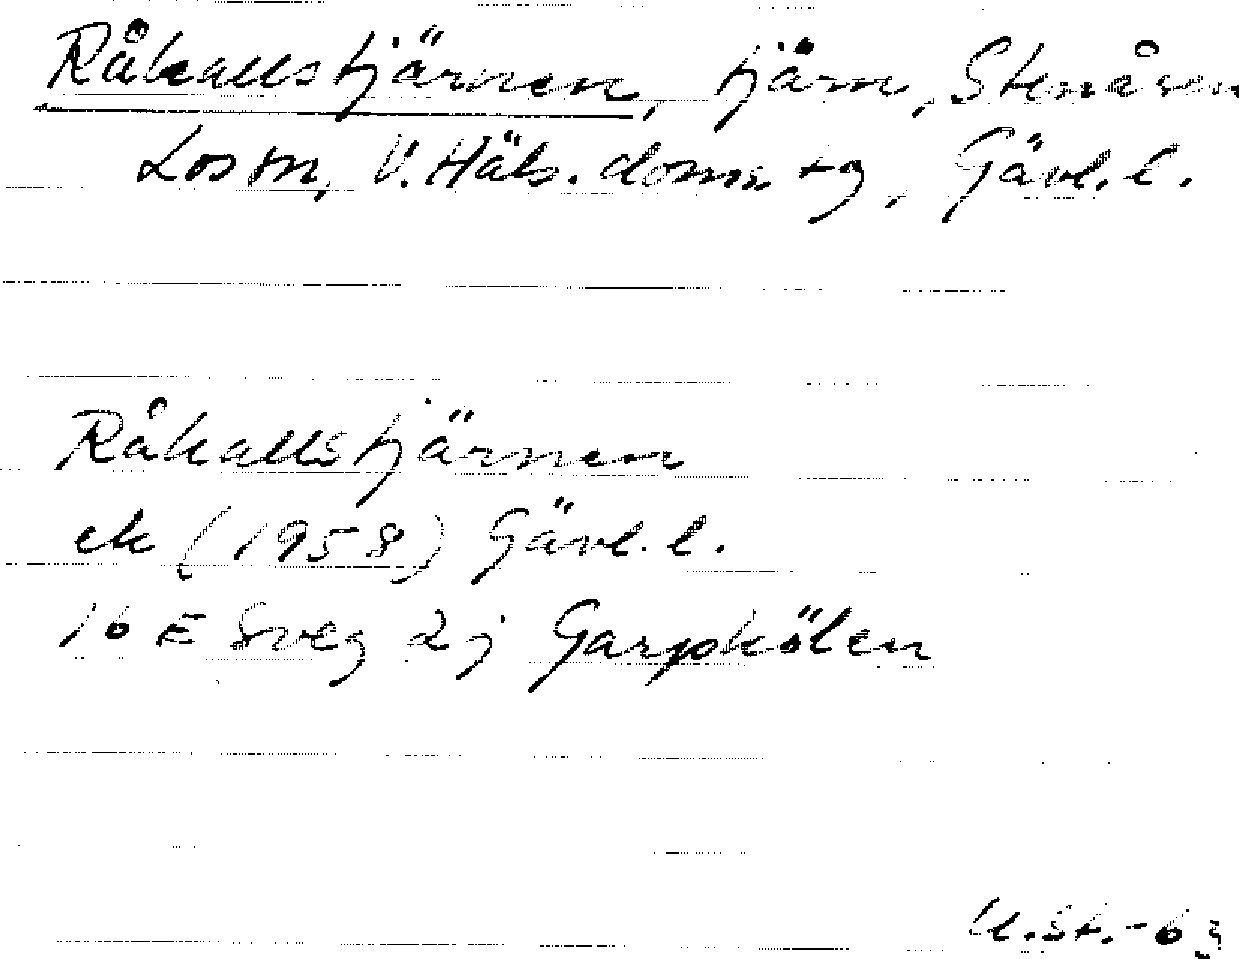 Råkallstjärnen, tjärn, Stenåsen
Los sn, V. Häls. doms tg, Gävl. l.
Råkallstjärnen
ek (1958) Gävl. l.
16 E Sveg 2j Garpkölen
U.St.-63